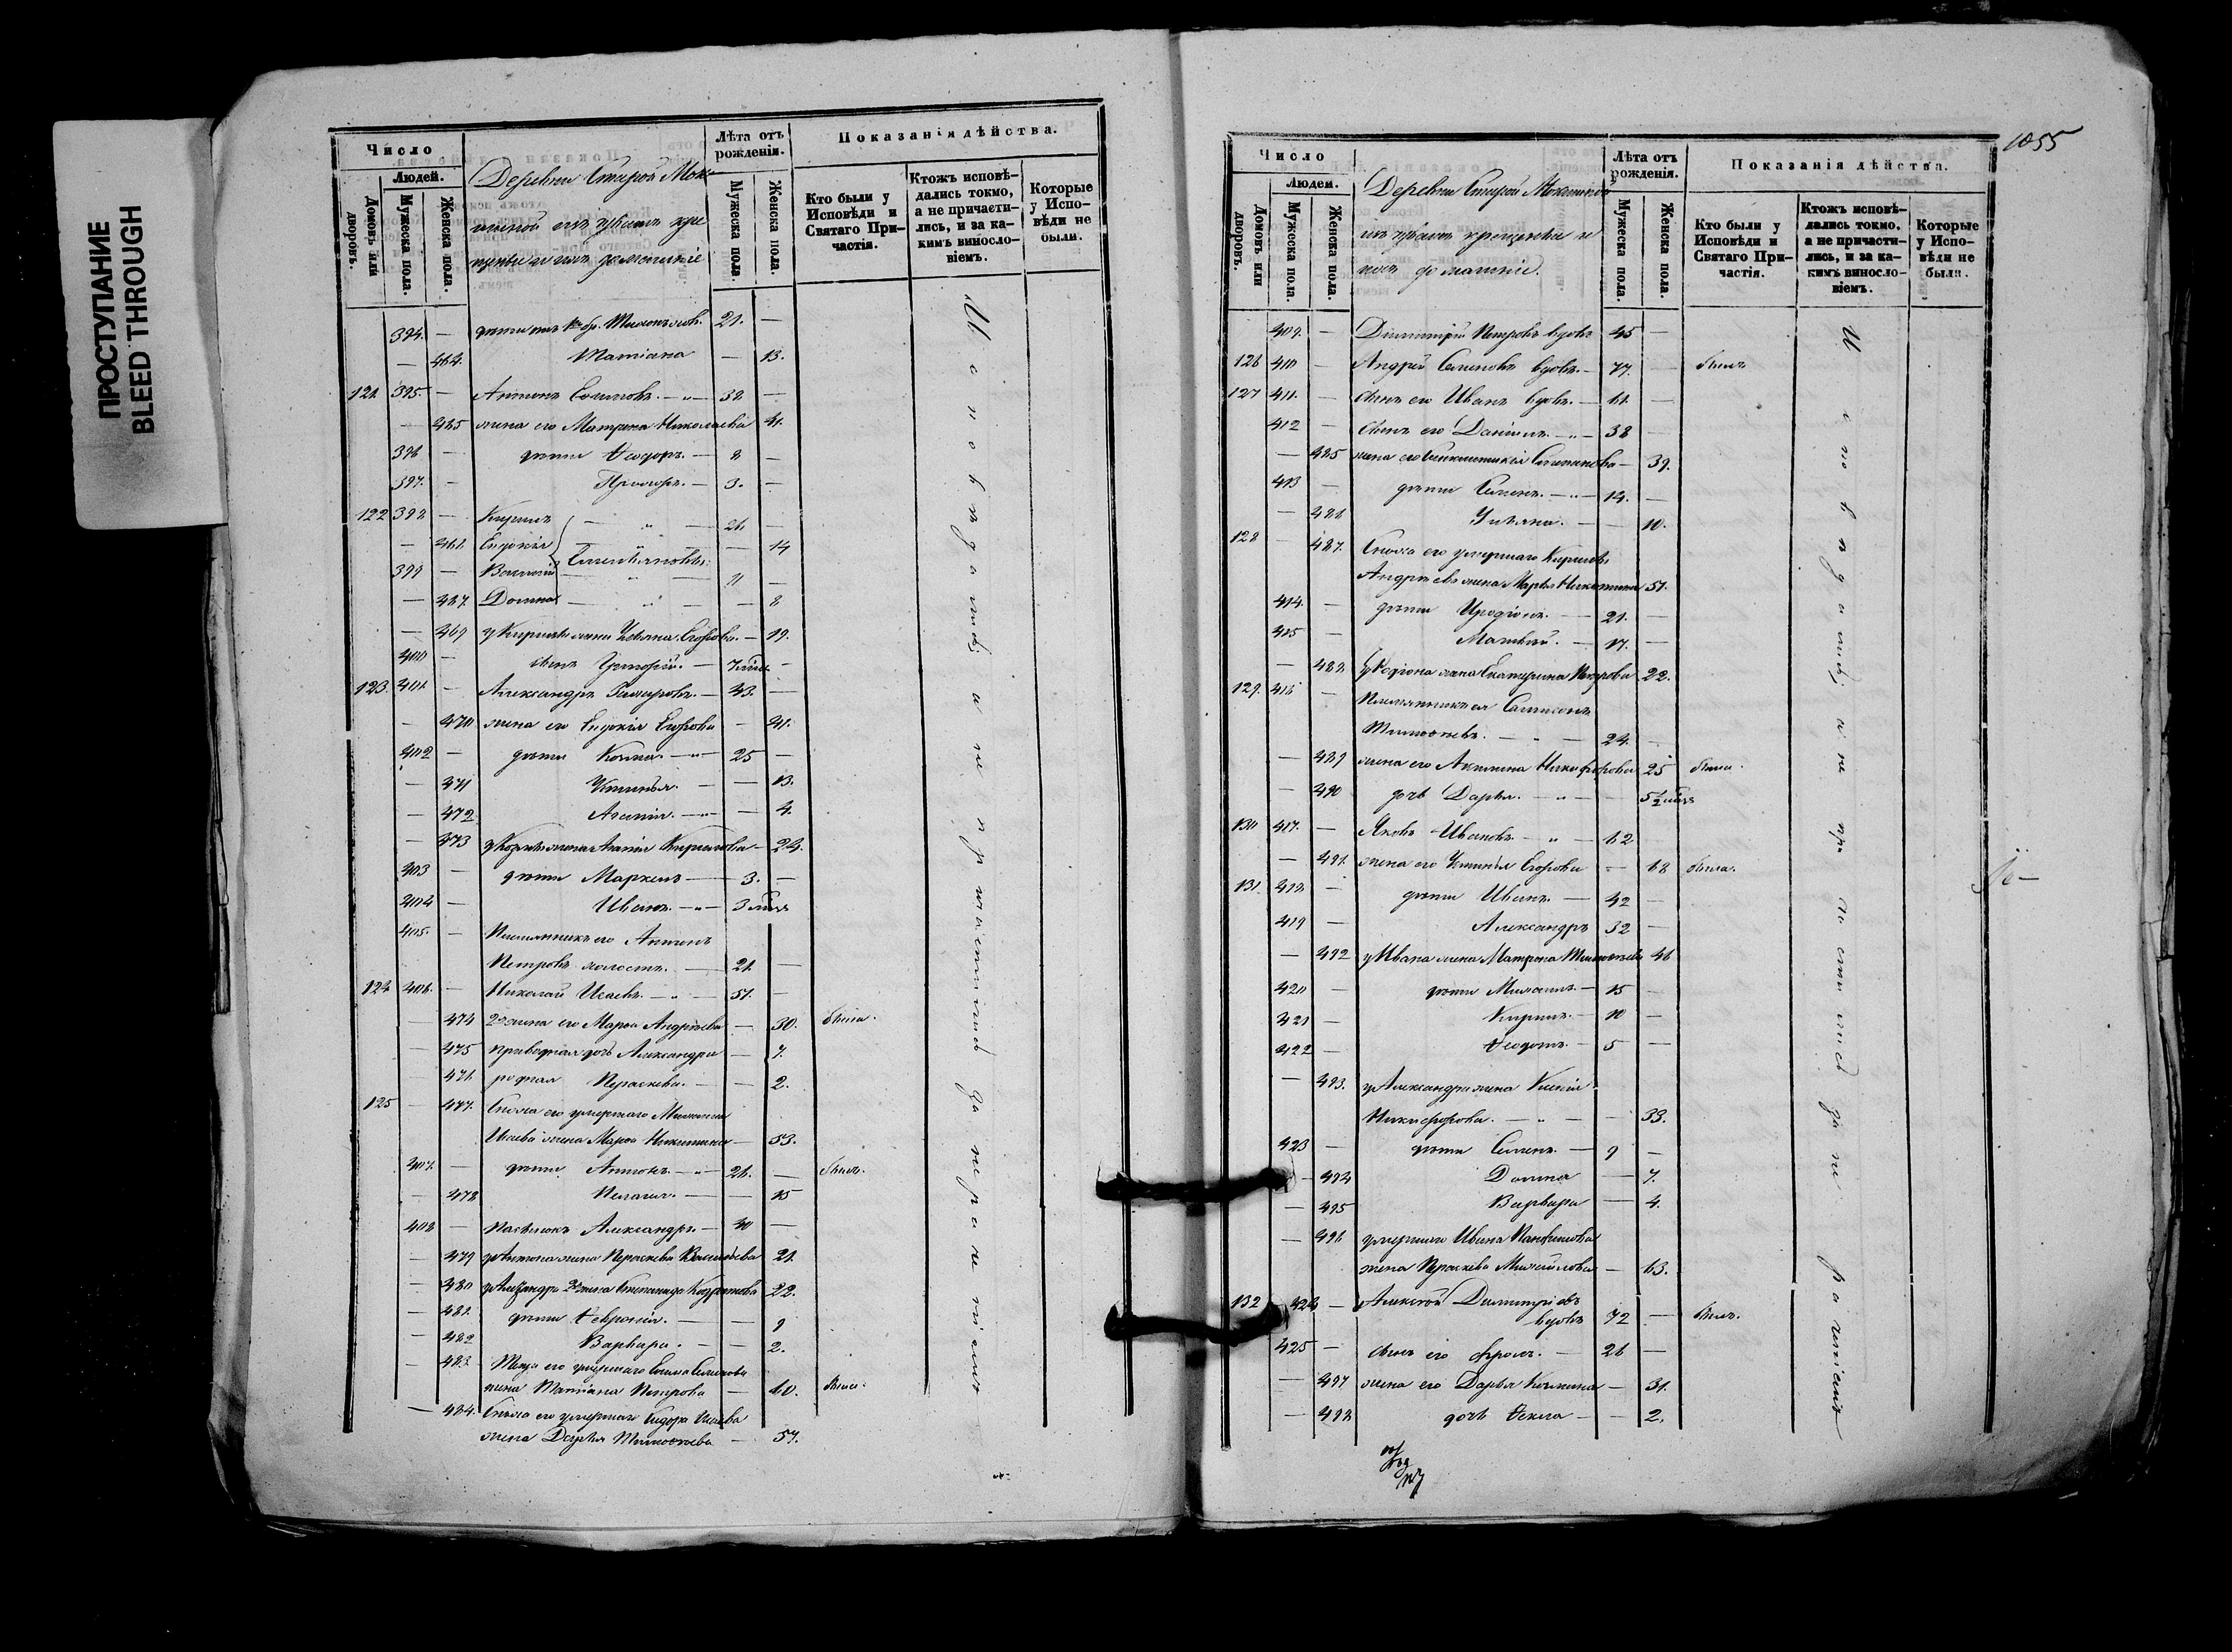 ПРОСТУПАНИЕ
BLEED THROUGH
Число
Людей.
Домовъ или дворовъ.
Мужеска пола.
Женска пола.
Деревни Старой Мок-
шиной изъ чувашъ кре
щеные и ихъ домашніе
Лѣта отъ рожденія.
Мужеска пола
Женска пола.
Показанія дѣйства.
Кто были у Исповѣди и Святаго Причастія.
Ктожъ исповѣ-
дались токмо,
а не причасти-
лись, и за ка-
кимъ виносло-
віемъ.
Которые
у Испо-
вѣди не
были.
394. — 21. —
— Татіана — 13.
121 395. — Антонъ — 38 —
— 465 жена его Матрона Николаева 41.
396 — дѣти Ѳеодоръ. — 8 —
397. — Прохоръ. — 3. —
122 398 — Кирилъ — 26. —
— Евдокія — 14
399 — Василій — 11 —
— 467. Домна — 8
— 469 у Кирила жена Ульяна Егорова. — 19.
400 — сынъ Григорій. —
123. 401. — Александръ — 43. —
— 470 жена его Евдокія Егорова — 41.
402 — дѣти Козма. — 25 —
— 471 Устинья. — 13.
— 472 — 4.
— 473 у Козмы жена Кирилова — 24.
403 — дѣти Маркелъ — 3. —
404 — Иванъ. — 3
405. — Племянникъ его Антонъ
Петровъ холостъ. — 21 —
124 406. — Николай Исаевъ. — 51. —
— 474 2я жена его Марѳа Андреева — 30. была.
— 475 приводная дочь Александра — 7.
— 476 родная Пераскева. — 2.
125 — 477. Сноха его умершаго
Исаева жена Марѳа Никитина — 53.
407. — дѣти Антонъ. — 26. — былъ.
— 478 Пелагея. — 15
408 — пасынокъ Александръ. — 40 —
— 479 у Антона жена Пераскева Васильева 21.
— 480 у Александра 2я жена Степанида 22.
— 481. дѣти Ѳевронія. — 9
— 482 Варвара. — 2.
— 483. его умершаго
жена Татіана Петрова — 60. была.
— 484. Сноха его умершаго Сидора Исаева
жена Дарья Тимоѳеева — 57.
Исповѣдались и не причастились за нераченіемъ
1055
Число
Людей.
Домовъ или дворовъ.
Мужеска пола.
Женска пола.
Деревни Старой Мокшиной
изъ чувашъ крещеные и
ихъ домашніе.
Лѣта отъ рожденія.
Мужеска пола.
Женска пола.
Показанія дѣйства.
Кто были у Исповѣди и Святаго Причастія.
Ктожъ исповѣ-
дались токмо,
а не причасти-
лись, и за ка-
кимъ виносло-
віемъ.
Которые
у Испо-
вѣди не
были.
409. — Димитрій Петровъ вдовъ 45 —
126 410 — Андрей Семеновъ вдовъ. — 77. — былъ
127 411. — сынъ его Иванъ вдовъ. — 61. —
412 — сынъ его Даніилъ. — 38 —
— 485 жена его Степанова — 39.
413 — дѣти Семенъ. — 14. —
— 486 Ульяна. — 10.
128 — 487. Сноха его умершаго Кирилы
Андреева жена Марѳа Никитина 51.
414. — дѣти Иродіонъ. — 21. —
415 — Матвей. — 17. —
— 488 у Родіона жена Екатерина Петрова 22.
129. 416 — Племянникъ ея Сампсонъ
Тимоѳеевъ. — 24. —
— 489 жена его Акилина Никифорова 25 была.
— 490 дочь Дарья. —
130 417. — Яковъ Ивановъ. — 62
— 491. жена его Устинья Егорова — 68 была.
131. 418. — дѣти Иванъ. — 42 —
419 — Александръ 32 —
— 492 у Ивана жена Матрона Тимоѳеева 46
420 — дѣти Михаилъ — 15 —
421 — Кирилъ. — 10 —
422 — Ѳеодотъ. — 5 —
— 493. у Александра жена Ксенія
Никифорова. — 33.
423 — дѣти Семенъ. — 9 —
— 494 Домна — 7.
— 495 Варвара — 4.
— 496 умершаго Ивана Панфилова
жена Пераскева Михайлова — 63.
132 424 — Алексѣй Димитріевъ
вдовъ 72 — былъ.
425 — сынъ его Фролъ. — 26 —
— 497 жена его Дарья Козмина — 31.
— 498 дочь Ѳекла — 2.
Исповѣдались и не причастились за нераченіемъ